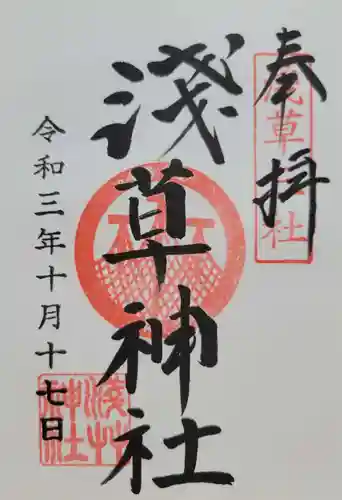 奉拝
浅草神社
淺草神社
淺草神社
令和三年十月十七日